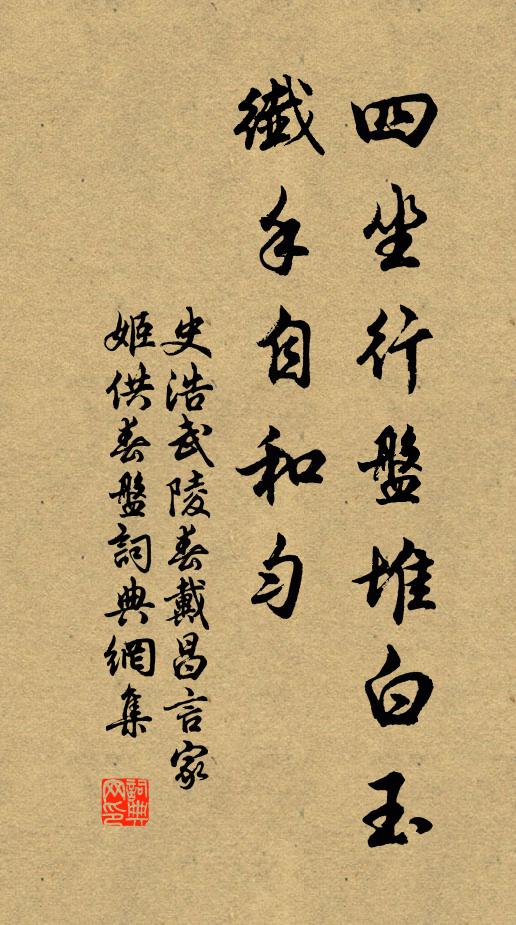 四坐行盤堆白玉
纖手自和勻
史浩武陵春戴昌言家
姬供春盤詞典網集
詞典网印